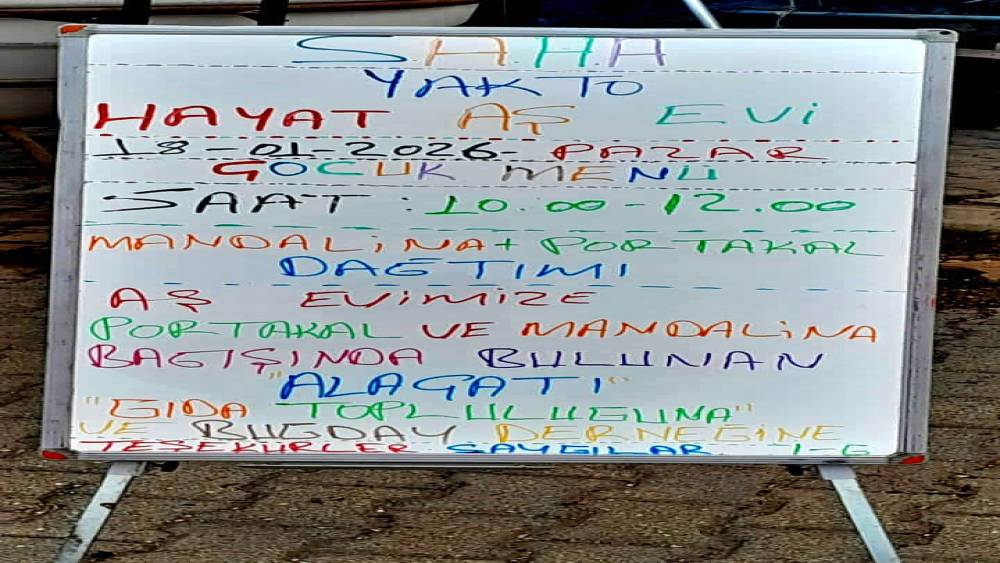 S.A.H.A
YAKTO
HAYAT AŞ EVi
18-01-2026- PAZAR
ÇOCUK MENÜ
SAAT : 10.00-12.00
MANDALiNA+ PORTAKAL
DAGITIMI
AŞ EViMiZE
PORTAKAL VE MANDALiNA
BAGIŞINDA BULUNAN
"ALAÇATI"
"GIDA TOPLULUGUNA"
VE BUGDAY DERNEGiNE
TEŞEKÜRLER SAYGILAR